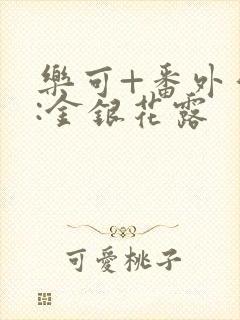 樂可+番外
:金銀花露
可愛桃子